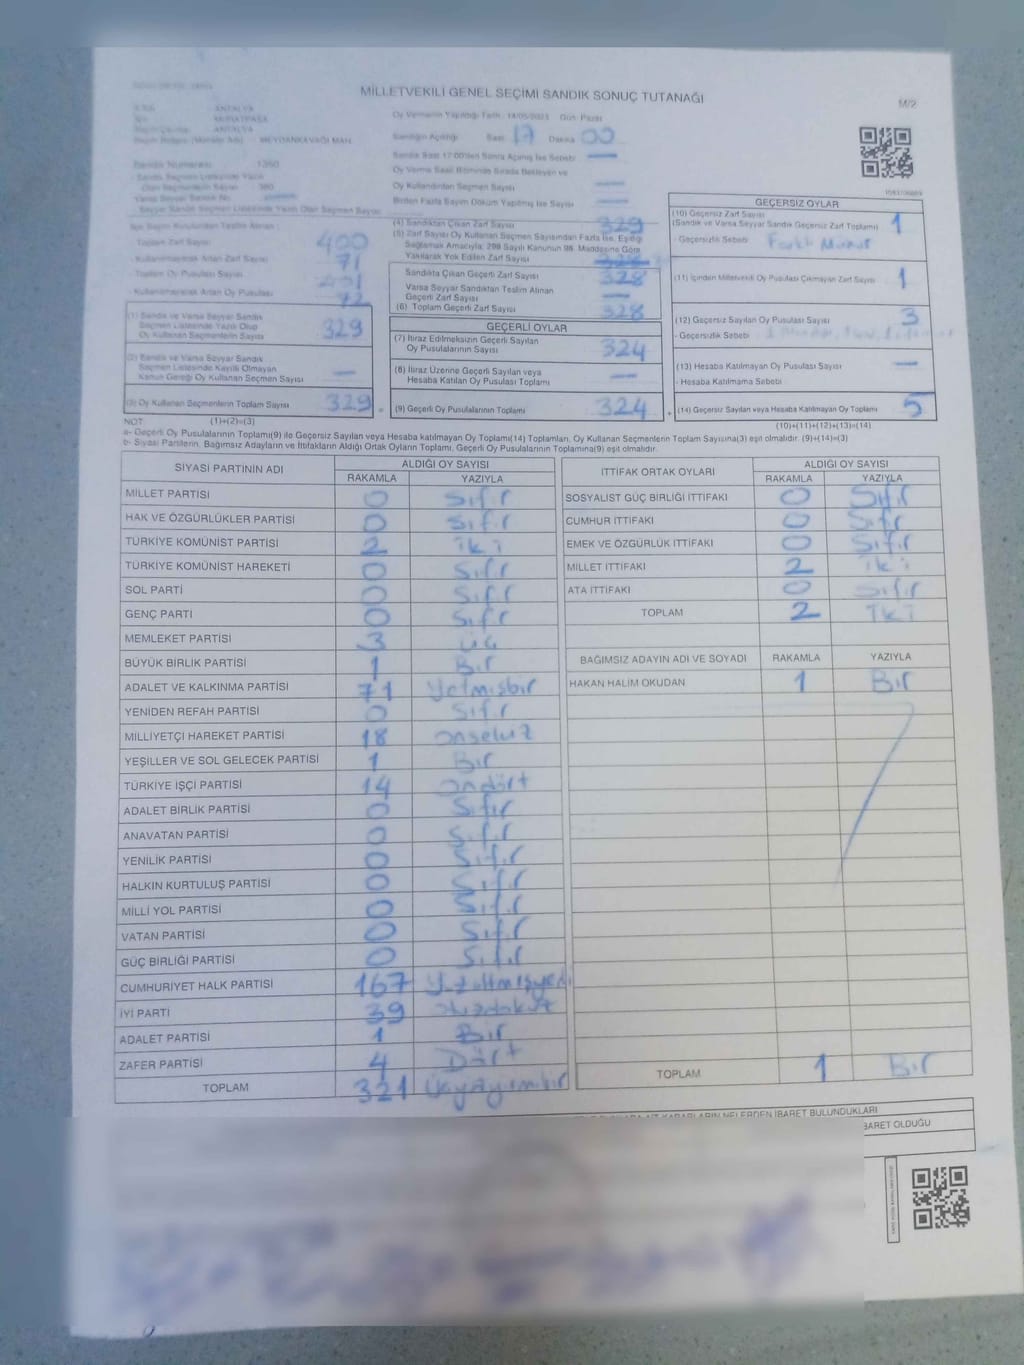 MİLLETVEKİLİ GENEL SEÇİMİ SANDIK SONUÇ TUTANAĞI
M/2
ANTALYA
MURATPAŞA
ANTALYA
MEYDANKAVAĞI MAH.
Oy Vermenin Yapıldığı Tarih : 14/05/2023 Gün: Pazar
Sandığın Açıldığı Saat 17 Dakika 00
Sandık Saat 17:00'den Sonra Açılmış İse Sebebi —
Oy Verme Saati Bitiminde Sırada Bekleyen ve
Oy Kullandırılan Seçmen Sayısı —
Birden Fazla Sayım Döküm Yapılmış İse Sayısı —
Sandık Numarası
400
71
401
72
(1) Sandık ve Varsa Seyyar Sandık
Seçmen Listesinde Yazılı Olup
Oy Kullanan Seçmenlerin Sayısı 329
(2) Sandık ve Varsa Seyyar Sandık
Seçmen Listesinde Kayıtlı Olmayan
Kanun Gereği Oy Kullanan Seçmen Sayısı —
(3) Oy Kullanan Seçmenlerin Toplam Sayısı 329
(4) Sandıktan Çıkan Zarf Sayısı 329
(5) Zarf Sayısı Oy Kullanan Seçmen Sayısından Fazla İse, Eşitliği
Sağlamak Amacıyla; 298 Sayılı Kanunun 98. Maddesine Göre
Yakılarak Yok Edilen Zarf Sayısı
Sandıkta Çıkan Geçerli Zarf Sayısı 328
Varsa Seyyar Sandıktan Teslim Alınan
Geçerli Zarf Sayısı —
(6) Toplam Geçerli Zarf Sayısı 328
GEÇERLİ OYLAR
(7) İtiraz Edilmeksizin Geçerli Sayılan
Oy Pusulalarının Sayısı 324
(8) İtiraz Üzerine Geçerli Sayılan veya
Hesaba Katılan Oy Pusulası Toplamı —
(9) Geçerli Oy Pusulalarının Toplamı 324
GEÇERSİZ OYLAR
(10) Geçersiz Zarf Sayısı
(Sandık ve Varsa Seyyar Sandık Geçersiz Zarf Toplamı) 1
- Geçersizlik Sebebi Farklı
(11) İçinden Milletvekili Oy Pusulası Çıkmayan Zarf Sayısı 1
(12) Geçersiz Sayılan Oy Pusulası Sayısı 3
- Geçersizlik Sebebi
(13) Hesaba Katılmayan Oy Pusulası Sayısı —
- Hesaba Katılmama Sebebi
(14) Geçersiz Sayılan veya Hesaba Katılmayan Oy Toplamı 5
NOT: (1)+(2)=(3)
(10)+(11)+(12)+(13)=(14)
a- Geçerli Oy Pusulalarının Toplamı(9) ile Geçersiz Sayılan veya Hesaba katılmayan Oy Toplamı(14) Toplamları, Oy Kullanan Seçmenlerin Toplam Sayısına(3) eşit olmalıdır. (9)+(14)=(3)
b- Siyasi Partilerin, Bağımsız Adayların ve İttifakların Aldığı Ortak Oyların Toplamı, Geçerli Oy Pusulalarının Toplamına(9) eşit olmalıdır.
SİYASİ PARTİNİN ADI ALDIĞI OY SAYISI
RAKAMLA YAZIYLA
MİLLET PARTİSİ 0 Sıfır
HAK VE ÖZGÜRLÜKLER PARTİSİ 0 Sıfır
TÜRKİYE KOMÜNİST PARTİSİ 2 iki
TÜRKİYE KOMÜNİST HAREKETİ 0 Sıfır
SOL PARTİ 0 Sıfır
GENÇ PARTİ 0 Sıfır
MEMLEKET PARTİSİ 3 üç
BÜYÜK BİRLİK PARTİSİ 1 Bir
ADALET VE KALKINMA PARTİSİ 71 Yetmişbir
YENİDEN REFAH PARTİSİ 0 Sıfır
MİLLİYETÇİ HAREKET PARTİSİ 18 onsekiz
YEŞİLLER VE SOL GELECEK PARTİSİ 1 Bir
TÜRKİYE İŞÇİ PARTİSİ 14 ondört
ADALET BİRLİK PARTİSİ 0 Sıfır
ANAVATAN PARTİSİ 0 Sıfır
YENİLİK PARTİSİ 0 Sıfır
HALKIN KURTULUŞ PARTİSİ 0 Sıfır
MİLLİ YOL PARTİSİ 0 Sıfır
VATAN PARTİSİ 0 Sıfır
GÜÇ BİRLİĞİ PARTİSİ 0 Sıfır
CUMHURİYET HALK PARTİSİ 167 Yüzaltmışyedi
İYİ PARTİ 39 otuzdokuz
ADALET PARTİSİ 1 Bir
ZAFER PARTİSİ 4 Dört
TOPLAM 321 Üçyüzyirmibir
İTTİFAK ORTAK OYLARI ALDIĞI OY SAYISI
RAKAMLA YAZIYLA
SOSYALİST GÜÇ BİRLİĞİ İTTİFAKI 0 Sıfır
CUMHUR İTTİFAKI 0 Sıfır
EMEK VE ÖZGÜRLÜK İTTİFAKI 0 Sıfır
MİLLET İTTİFAKI 2 iki
ATA İTTİFAKI 0 Sıfır
TOPLAM 2 iki
BAĞIMSIZ ADAYIN ADI VE SOYADI RAKAMLA YAZIYLA
HAKAN HALİM OKUDAN 1 Bir
TOPLAM 1 Bir
KARARLARIN NELERDEN İBARET BULUNDUKLARI
İBARET OLDUĞU